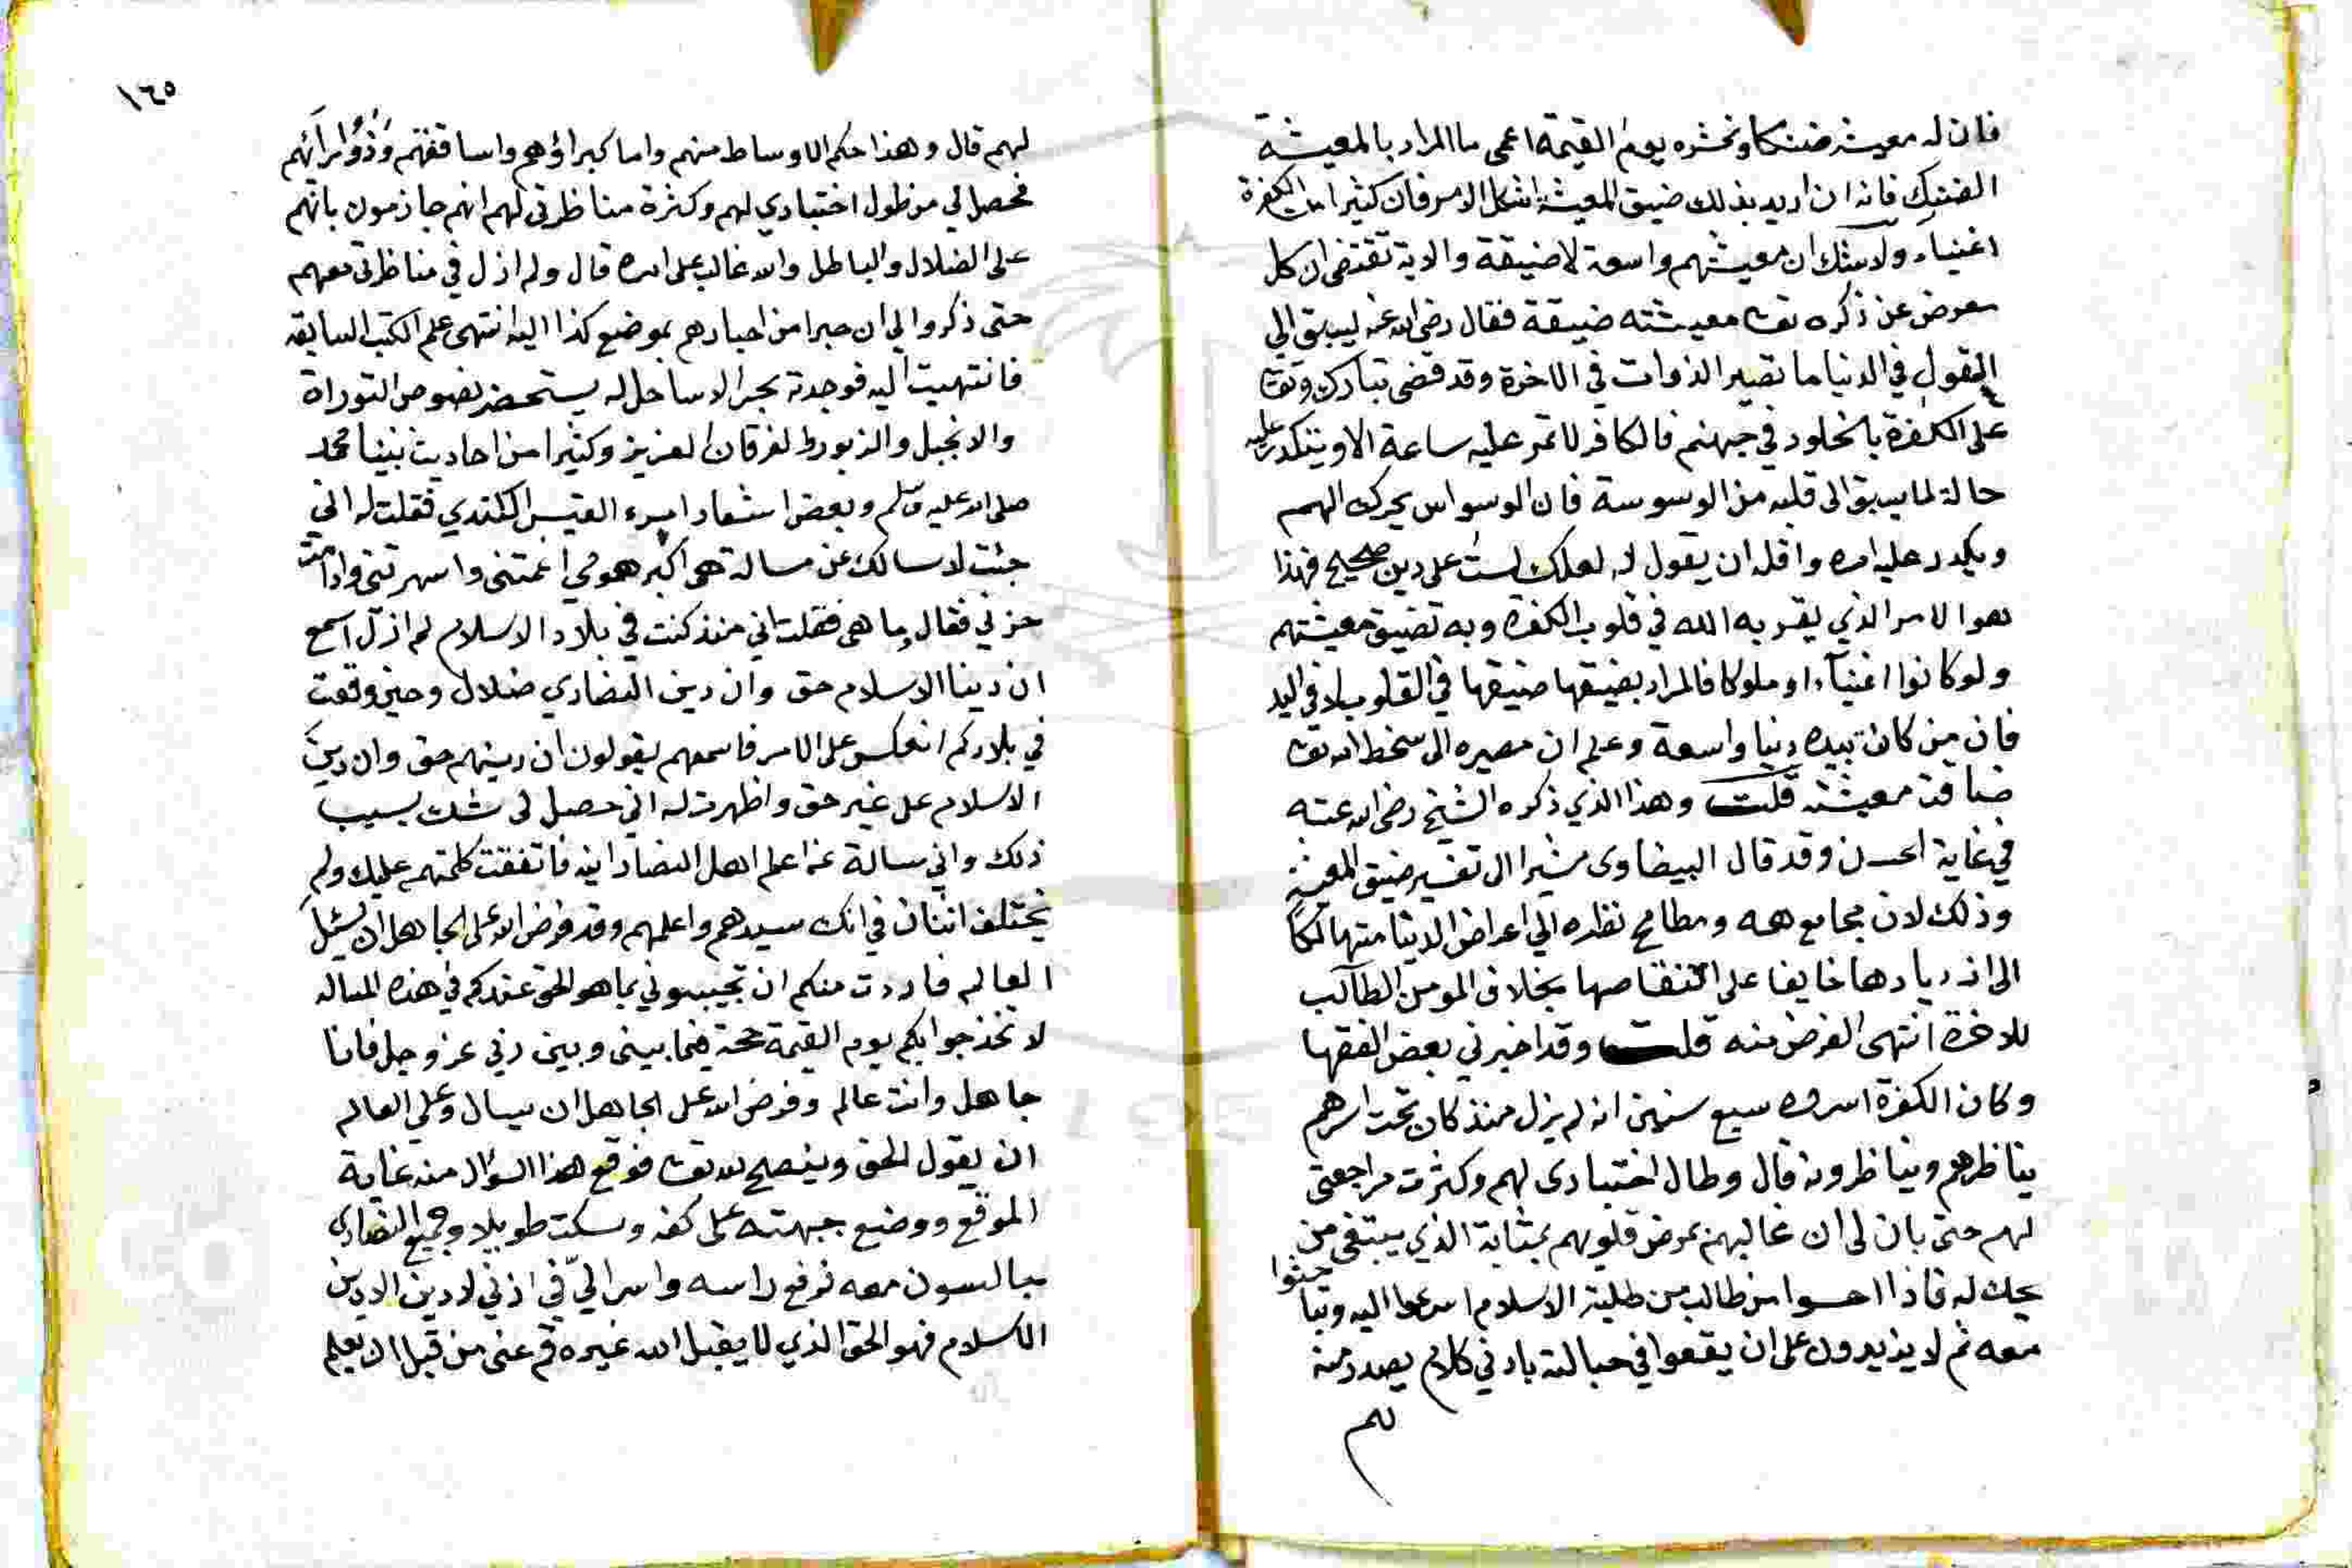 فان له معيشة ضنكا ونحشره يوم القيمة اعمى ما المراد بالمعيشة
الضنك فانه ان اريد بذلك ضيق المعيشة اشكل الامر فان كثيرا من الكفرة
اغنياء ولا شك ان معيشتهم واسعة لا ضيقة والاية تقتضى ان كل
معرض عن ذكره تعا معيشته ضيقة فقال رضى الله عنه ليسبق الي
العقول في الدنيا ما تصير الذوات في الاخرة وقد قضى تبارك وتعا
على الكفرة بالخلود في جهنم فالكافر لا تمر عليه ساعة الا ويتكدر عليه
حالة لما يسبق الى قلبه من الوسوسة فان الوسواس يحرك الهم
ويكدر عليه امره واقله ان يقول له لعلك لست على دين صحيح فهذا
هوا الامر الذي يقر به الله في قلوب الكفرة وبه تضيق معيشتهم
ولو كانوا اغنيآء او ملوكا فالمراد بضيقها ضيقها في القلوب لا في اليد
فان من كان بيده دنيا واسعة وعلم ان مصيره الى سخط الله تعا
ضاقت معيشته قلت وهذا الذي ذكره الشيخ رضى الله عنه
في غاية الحسن وقد قال البيضاوى مشيرا الى تفسير ضيق المعيشة
وذلك لان مجامع همه ومطامح نظره الي اعراض الدنيا متهالكا
الى ازديادها خايفا على انتقاصها بخلاف المومن الطالب
للاخرة انتهى الغرض منه قلت وقد اخبرني بعض الفقها
وكان الكفرة اسروه سبع سنين انه لم يزل منذ كان تحت اسرهم
يناظرهم ويناظرونه قال وطال اختبارى لهم وكثرت مراجعتى
لهم حتى بان لى ان غالبهم بمرض قلوبهم بمثابة الذي يبتغى من
يحك له فاذا احسوا من طالب من طلبة الاسلام اسرعوا اليه وتباحثوا
معه ثم لا يزيدون على ان يقعوا في حبالته بادنى كلام يصدر منه
لهم
١٦٥
لهم قال وهذا حكم الاوساط منهم واما كبراؤهم واساقفتهم وذووا رأيهم
فحصل لي من طول اختبارى لهم وكثرة مناظرتى لهم انهم جازمون بانهم
على الضلال والباطل والله غالب على امره قال ولم ازل في مناظرتى معهم
حتى ذكروا لي ان حبرا من احبارهم بموضع كذا اليه انتهى علم الكتب السابقة
فانتهيت اليه فوجدته بحرا لا ساحل له يستحضر نصوص التوراة
والانجيل والزبور والفرقان العزيز وكثيرا من احاديث نبينا محمد
صلى الله عليه وسلم وبعض اشعار امرء القيس الكندي فقلت له اني
جئت لاسالك عن مسالة هى اكبر همومي اغمتنى واسهرتنى وادامت
حزني فقال وما هى فقلت اني منذ كنت في بلاد الاسلام لم ازل اسمع
ان ديننا الاسلام حق وان دين النصارى ضلال وحين وقعت
في بلادكم انعكس على الامر فاسمعهم يقولون ان دينهم حق وان دين
الاسلام على غير حق واظهرت له اني حصل لى شك بسبب
ذلك واني سالت عن اعلم اهل النصارانيه فاتفقت كلمتهم عليك ولم
يختلف اثنان في انك سيدهم واعلمهم وقد فرض الله على الجاهل ان يسئل
العالم فاردت منكم ان تجيبوني بما هو الحق عندكم في هذه المساله
لاتخذ جوابكم يوم القيمة حجة فيما بينى وبين ربي عز وجل فانا
جاهل وانت عالم وفرض الله على الجاهل ان يسال وعلى العالم
ان يقول الحق وينصح لله تعا فوقع هذا السؤال منه غاية
الموقع ووضع جبهته على كفه وسكت طويلا وجميع النصارى
جالسون معه فرفع راسه واسر اليّ في اذني لا دين الا دين
الاسلام فهو الحق الذي لا يقبل الله غيره قم عنى من قبل ان يعلم